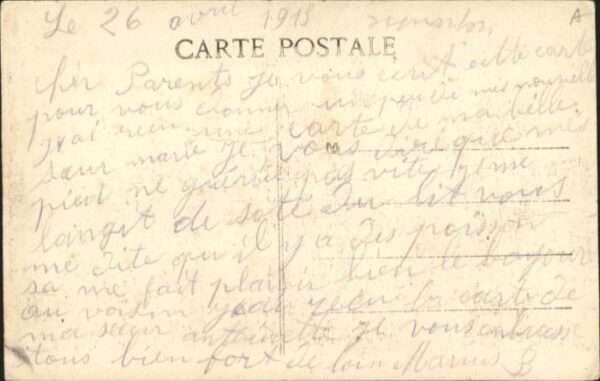 Le 26 avril 1915
A
CARTE POSTALE
Cher Parents Je vous ecrit cette carte
pour vous donner un peu de mes nouvelle
J'ai recu une carte de ma belle
sœur marie Je vous dirai que mes
M
pied ne guérite pas vite Je me
langit de soté du lit vous
me dite qu'il y a des poisson
sa me fait plaisir bien le bonjour
au voisin la carte de
ma sœur antoinette Je vous enbrasse
tous bien fort de loin Marius B